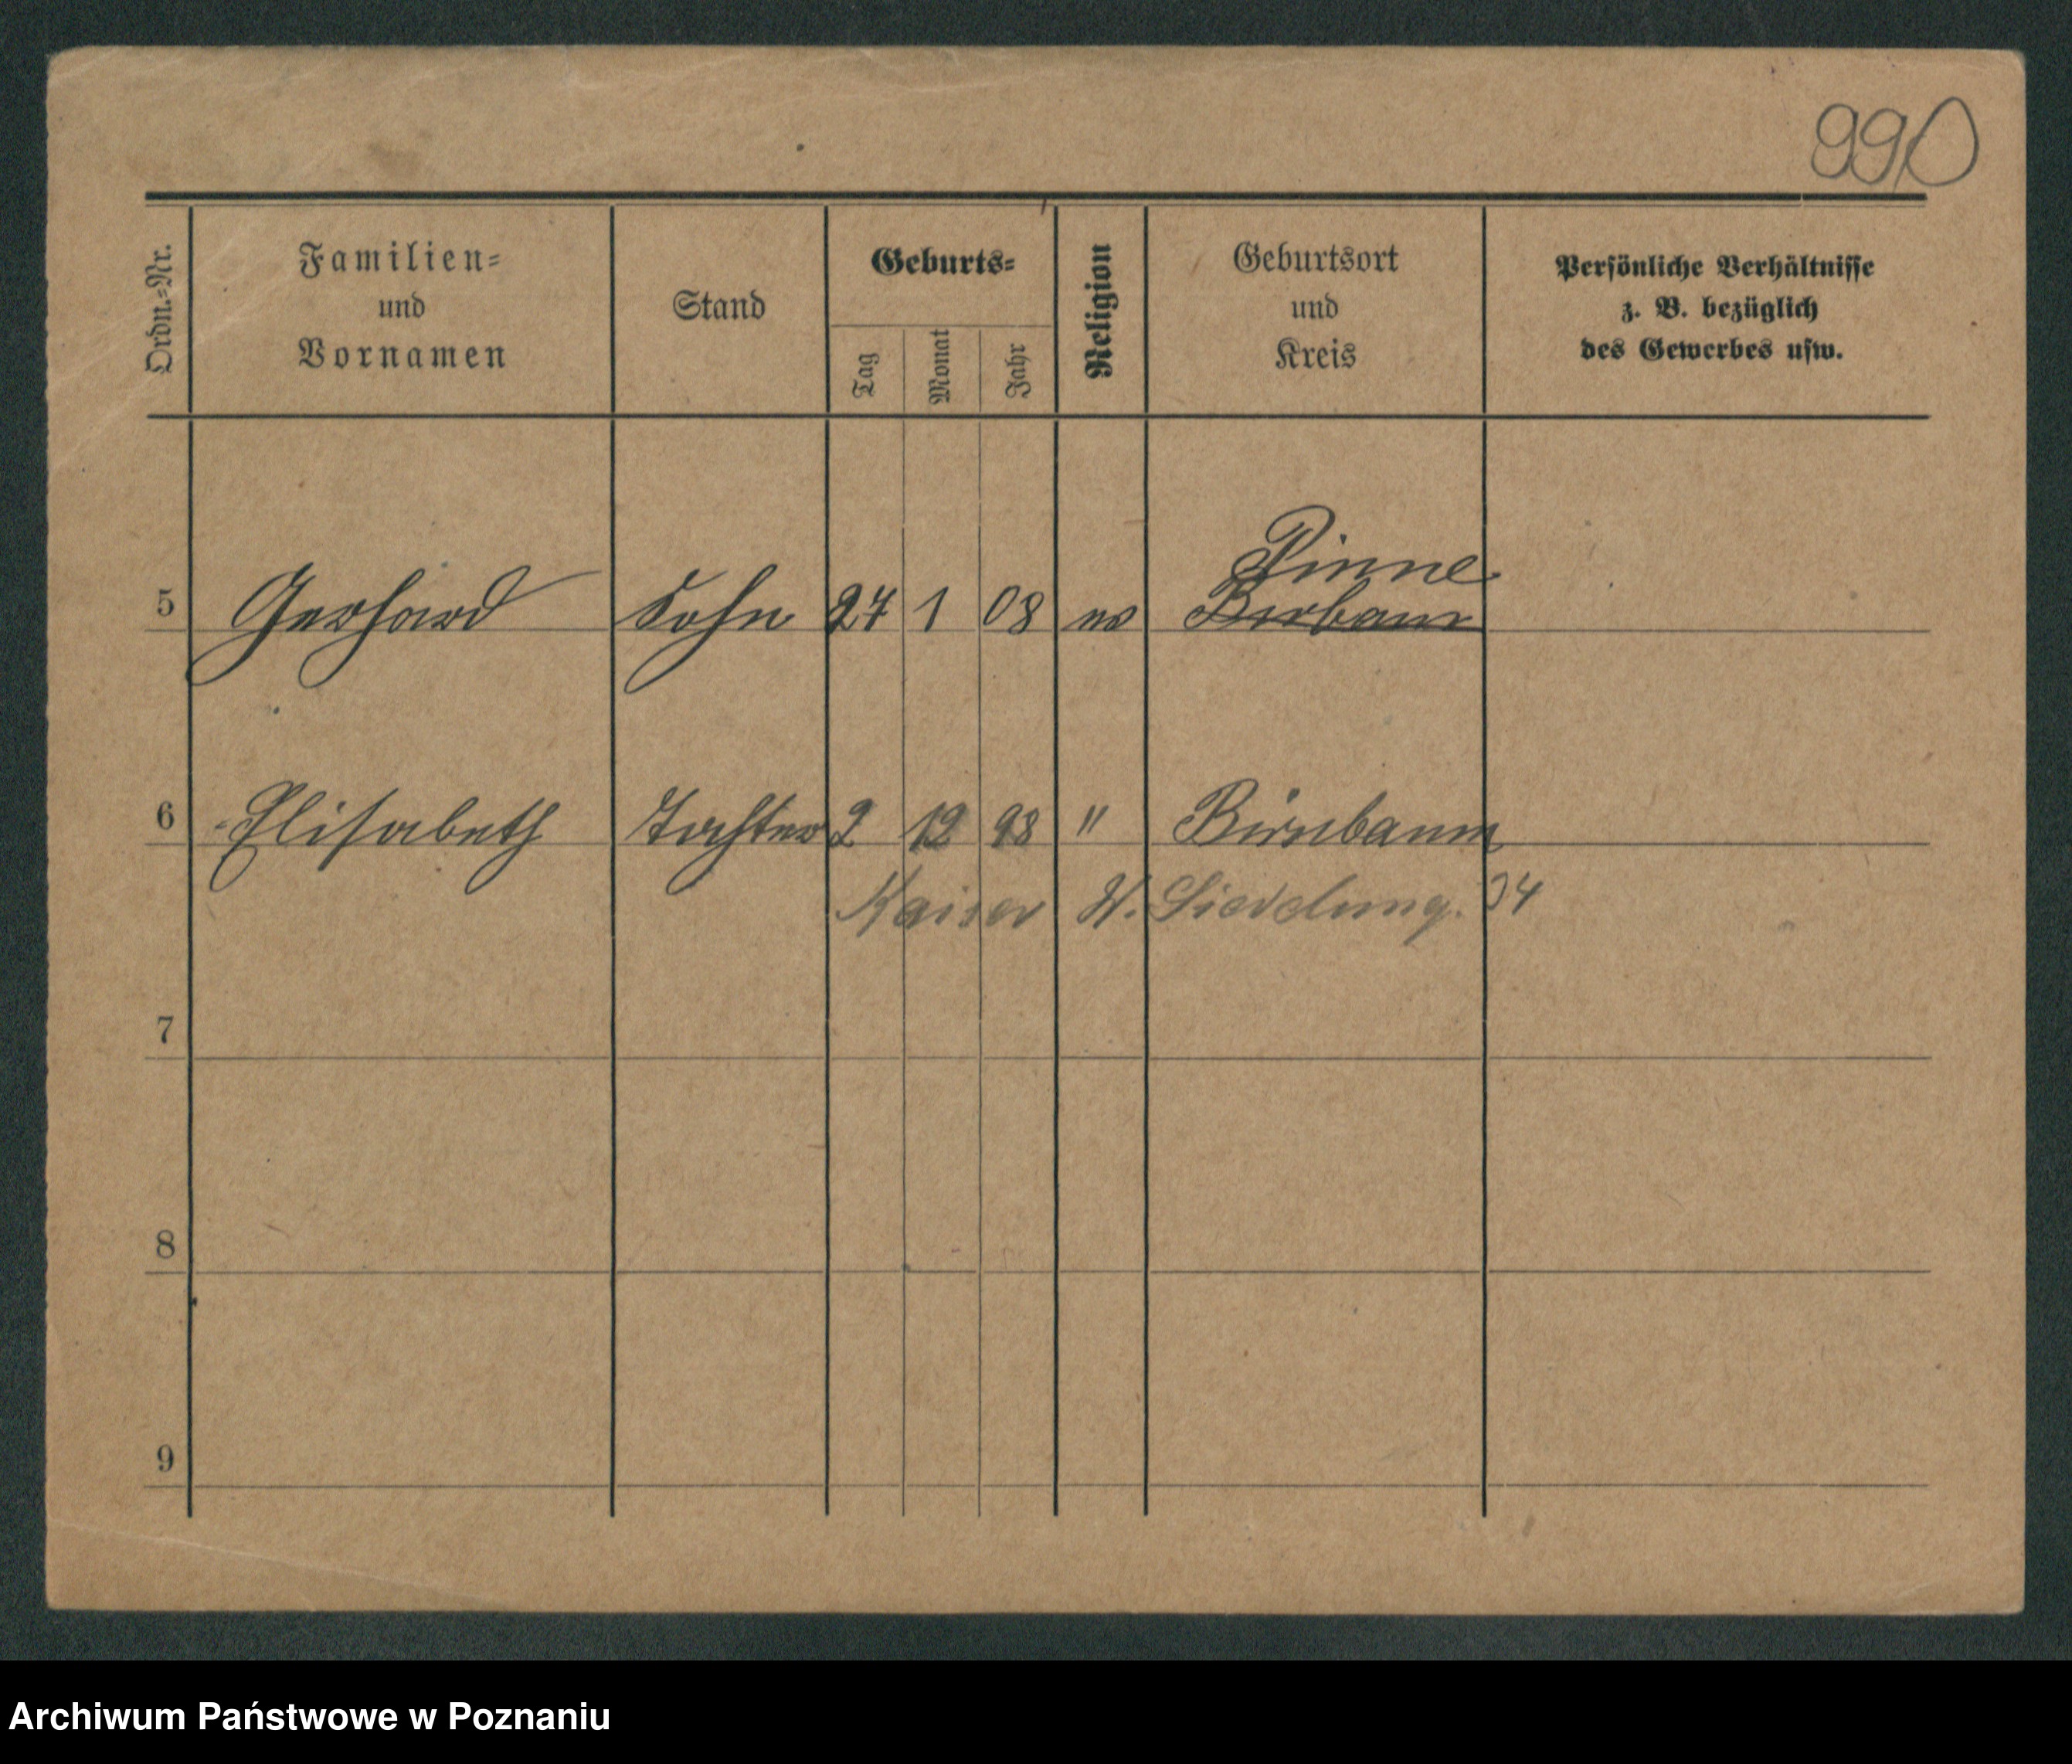 990
Ordn.-Nr.
Familien-
und
Vornamen
Stand
Geburts-
Tag
Monat
Jahr
Religion
Geburtsort
und
Kreis
Persönliche Verhältnisse
z. B. bezüglich
des Gewerbes usw.
Pinne
5 Gerhard Sohn 27 1 08 ev Birbaum
6 Elisabeth Tochter 2 12 98 " Birnbaum
Kaiser W. Siedelung. 34
7
8
9
Archiwum Państwowe w Poznaniu